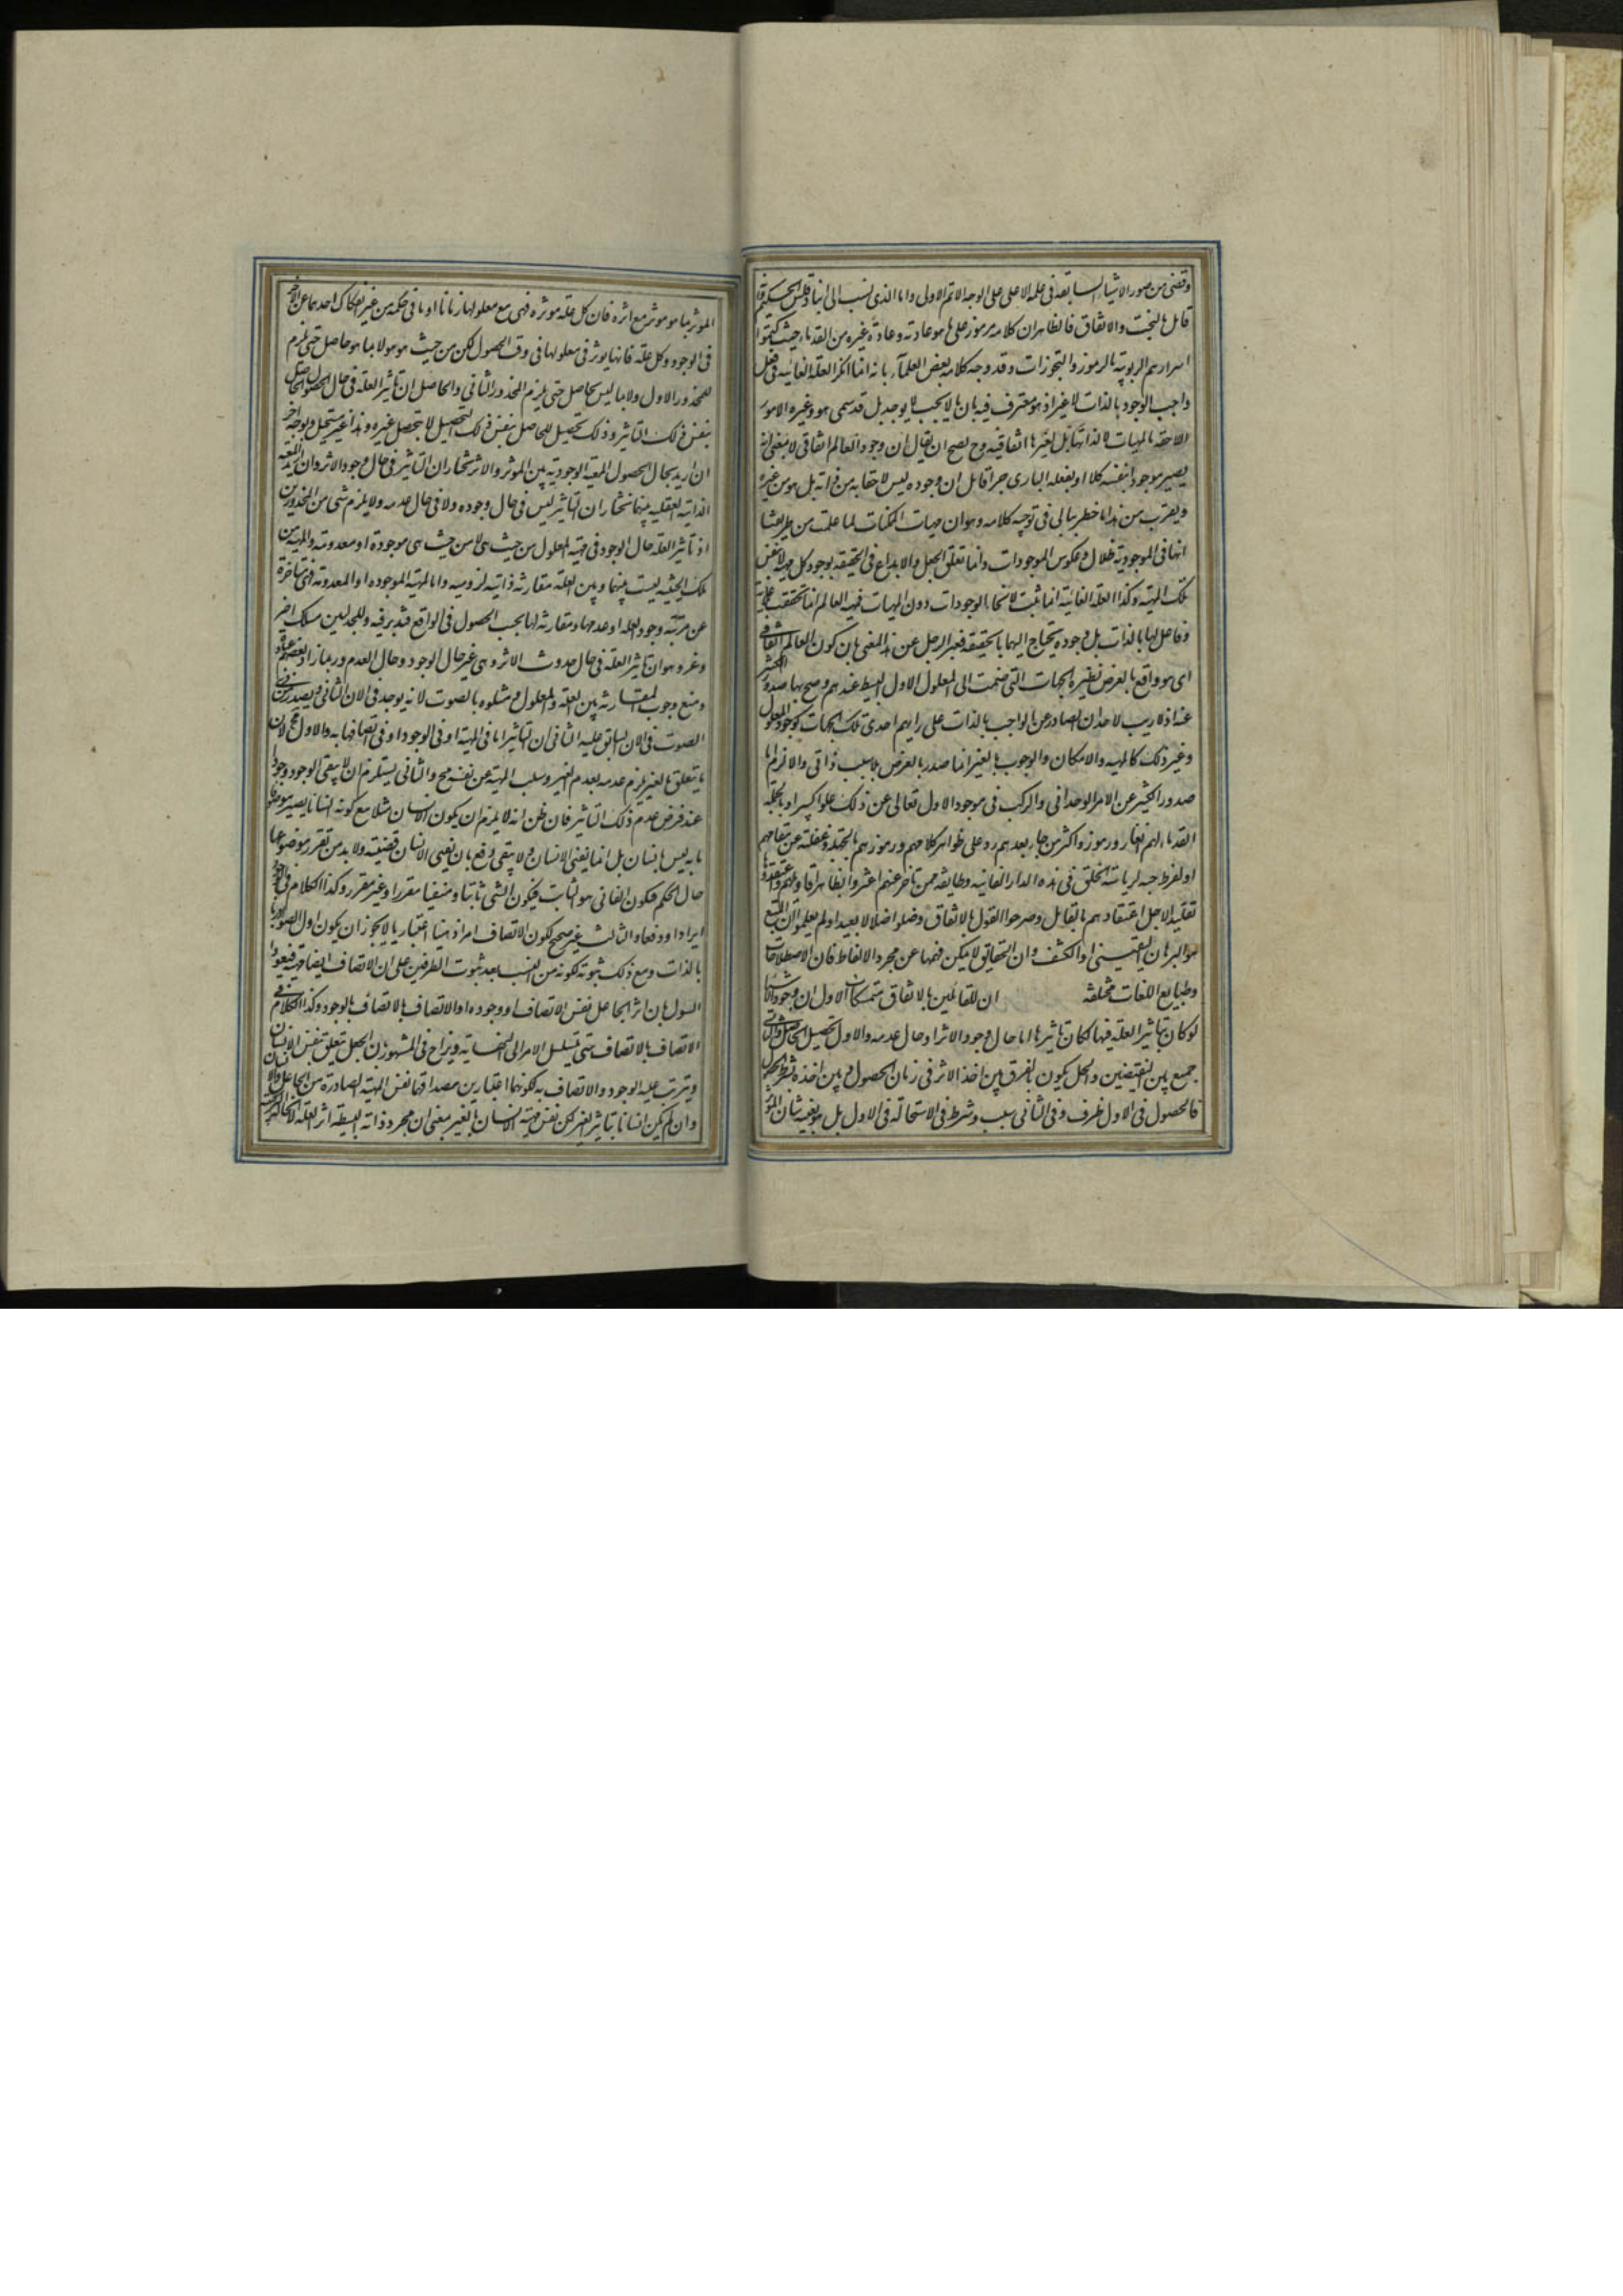 وقضى من صور الاشياء السابقة فى علمه الاعلى على الوجه الاتم الاولى واما الذى نسب الى انباذقلس الحكيم
قائل بالبخت والاتفاق فالظاهر ان كلامه مرموز على ما هو عادته وعادة غيره من القدماء حيث كتموا
اسرارهم الربوبية بالرموز والتجوزات وقد وجه كلامه بعض العلمآء بانه انما انكر العلة الغائيه فى فعل
واجب الوجود بالذات لا غير اذ هو معترف فيه بان ما لا يجب لا يوجد بل قد سمى هو وغيره الامور
اللاحقه بالمهيات لا لذاتها بل لغيرها اتفاقيه وح يصح ان يقال ان وجود العالم اتفاقى لا بمعنى انه
يصير موجودا بنفسه كلا او بفعله البارى جزافا بل ان وجوده ليس لاحقا به من ذاته بل هو من غيره
ويقرب من هذا ما خطر ببالى فى توجيه كلامه وهو ان مهيات الممكنات لما علمت من طريقتنا
انها فى الموجودية ظلال وعكوس للموجودات وانما تعلق الجعل والابداع فى الحقيقة بوجود كل مهية لا بنفس
تلك المهية وكذا العلة الغائية انما ثبت لانحاء الوجودات دون المهيات فمهية العالم انما تحققت
وفاعل لها بالذات بل وجوده يحتاج اليهما بالحقيقة فعبر الرجل عن هذا المعنى بان كون العالم اتفاقى
اى هو واقع بالعرض نظيره الجهات التى ضمت الى المعلول الاول البسيط عندهم وصح بها صدور الكثير
عنه اذ لا ريب لاحد ان الصادر عن الواجب بالذات على رايهم احدى تلك الجهات كوجود المعلول
وغير ذلك كالمهيه والامكان والوجوب بالغير انما صدر بالعرض بلا سبب ذاتى والا لزم اما
صدور الكثير عن الامر الوحدانى والتركب فى موجود الاول تعالى عن ذلك علوا كبيرا وبالجمله
القدماء لهم الغاز ورموز واكثر من جاء بعدهم رد على ظواهر كلامهم ورموزهم اما بجهله او غفلته عن مقامهم
او لفرط حبه لرياسة الخلق فى هذه الدار الفانيه وطائفة ممن تاخر عنهم اغتروا بظاهر اقاويلهم واعتقدوها
تقليدا لاجل اعتقادهم بالقائل وصرحوا القول بالاتفاق وضلوا ضلالا بعيدا ولم يعلموا ان المتبع
هو البرهان اليقينى او الكشف وان الحقايق لا يمكن فهمها عن مجرد الالفاظ فان الاصطلاحات
وطبايع اللغات مختلفة ان للقائلين بالاتفاق متمسكات الاول ان وجود الاشياء
لو كان بتاثير العلة فيها لكان تاثيرها اما حال وجود الاثر او حال عدمه والاول تحصيل الحاصل والثانى
جمع بين النقيضين والحل يكون بالفرق بين اخذ الاثر فى زمان الحصول وبين اخذه بشرط الحصول
فالحصول فى الاول ظرف وفى الثانى سبب وشرط فى الاستحالة فى الاول بل هو بعينه شان المؤثر
المؤثر بما هو موثر مع اثره فان كل علة موثره فهى مع معلولها زمانا او ما فى حكمه من غير انفكاك احدهما عن الاخر
فى الوجود وكل علة فانها يوثر فى معلولها فى وقت الحصول لكن من حيث هو هو لا بما هو حاصل حتى يلزم
المحذور الاول ولا بما ليس بحاصل حتى يلزم المحذور الثانى والحاصل ان تاثير العلة فى حال الحصول الحاصل
بنفس ذلك التاثير وذلك تحصيل للحاصل بنفس ذلك التحصيل لا بتحصيل غيره وهذا غير مستحيل وبوجه اخر
ان اريد بحال الحصول المعية الوجودية بين الموثر والاثر نختار ان التاثير فى حال وجود الاثر وان اريد المعية
الذاتية العقليه بينهما نختار ان التاثير ليس فى حال وجوده ولا فى حال عدمه ولا يلزم شى من المحذورين
اذ تاثير العلة حال الوجود فى مهية المعلول من حيث هى لا من حيث هى موجودة او معدومة والمهية من
تلك الحيثيه ليست بينها وبين العلة مقارنة ذاتية لزوميه واما المهية الموجوده او المعدومة فهى متاخرة
عن مرتبة وجود العله او عدمها ومقارنة لها بحسب الحصول فى الواقع فتدبر فيه وللجدليين مسلك اخر
وعر وهو ان تاثير العلة فى حال حدوث الاثر وهى غير حال الوجود وحال العدم وربما زاد بعضهم
ومنع وجوب المقارنة بين العلة والمعلول ومثلوه بالصوت لانه يوجد فى الان الثانى ويصدر من ذى
الصوت فى الان السابق عليه الثانى ان التاثير اما فى المهية او فى الوجود او فى اتصافها به والاول مح لان
ما يتعلق بالغير يلزم عدمه بعدم الغير وسلب المهية عن نفسه مح والثانى يستلزم ان لا يبقى الوجود وجودا
عند فرض عدم ذلك التاثير فان ظن انه لا يلزم ان يكون الانسان مثلا مع كونه انسانا يصير موصوفا
بانه ليس بانسان بل انما يفنى الانسان ولا يبقى دفع بان نفى الانسان قضية ولا بد من تقرر موضوعها
حال الحكم فيكون الفانى هو الثابت فيكون الشى ثابتا ومنفيا مقررا وغير مقرر وكذا الكلام فى الوجود
ايرادا ودفعا والثالث غير صحيح لكون الاتصاف امرا ذهنيا اعتباريا لا يجوز ان يكون اول الصوادر
بالذات ومع ذلك ثبوته لكونه من النسب بعد ثبوت الطرفين على ان الاتصاف ايضا مهية فيعود
السول بان اثر الجاعل نفس الاتصاف او وجوده او الاتصاف بالاتصاف بالوجود وكذا الكلام فى
الاتصاف بالاتصاف حتى يتسلسل الامر الى النهايه ويزاح فى المشهور بان الجعل يتعلق بنفس الانسان
ويترتب عليه الوجود والاتصاف به لكونهما اعتبارين مصداقهما نفس المهية الصادرة من الجاعل والانسان
وان لم يكن انسانا بتاثير الغير لكن نفس مهية الانسان بالغير بمعنى ان مجرد ذاته البسيطة اثر العلة